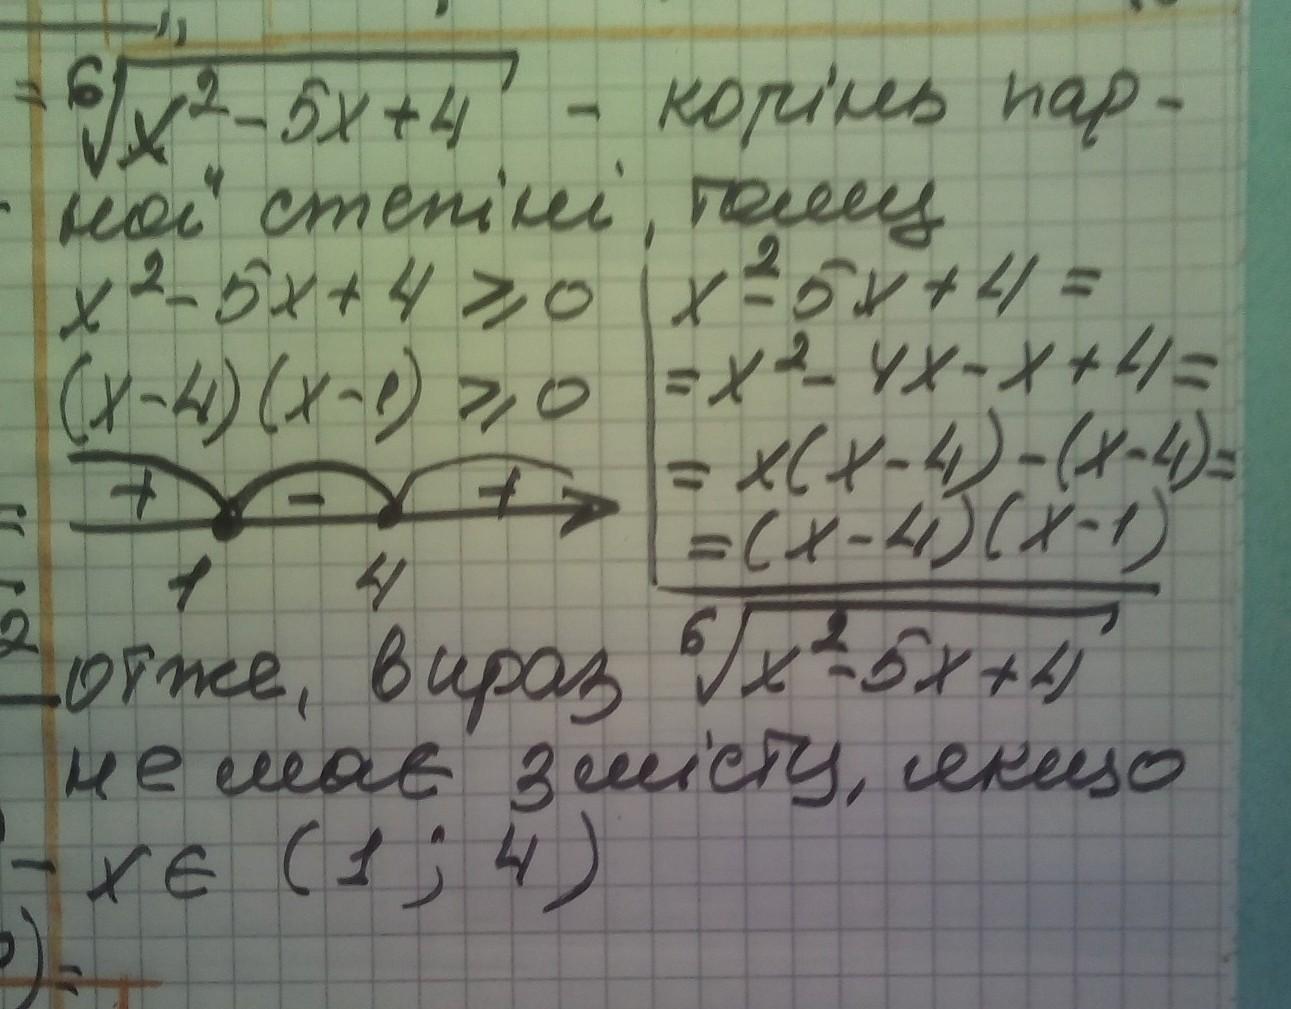 = ⁶√(x² - 5x + 4) - корінь пар-
ної степіні, тому
x² - 5x + 4 ⩾ 0
(x - 4)(x - 1) ⩾ 0
+ - +
1 4
x² - 5x + 4 =
= x² - 4x - x + 4 =
= x(x - 4) - (x - 4) =
= (x - 4)(x - 1)
отже, вираз ⁶√(x² - 5x + 4)
не має змісту, якщо
x ∈ (1 ; 4)